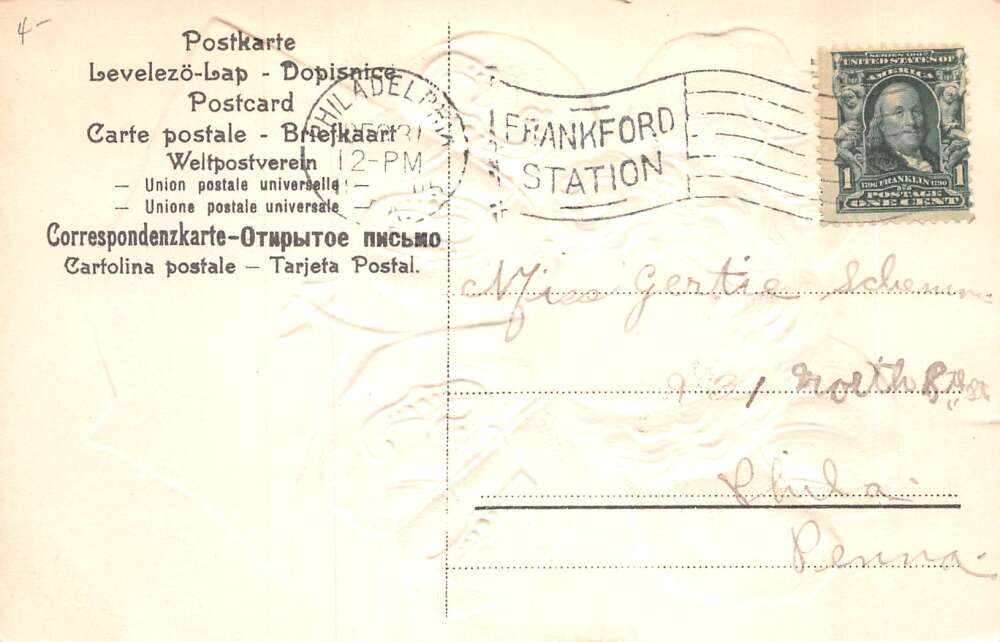 4-
Postkarte
Levelezö-Lap - Dopisnice
Postcard
Carte postale - Briefkaart
Weltpostverein
— Union postale universelle —
— Unione postale universale —
Correspondenzkarte-Открытое письмо
Cartolina postale — Tarjeta Postal.
PHILADELPHIA
DEC 31
12-PM
FRANKFORD
STATION
SERIES 1902
UNITED STATES OF
AMERICA
1 1706 FRANKLIN 1790 1
POSTAGE
ONE CENT
Miss Gertie
931 North
Phila.
Penna.